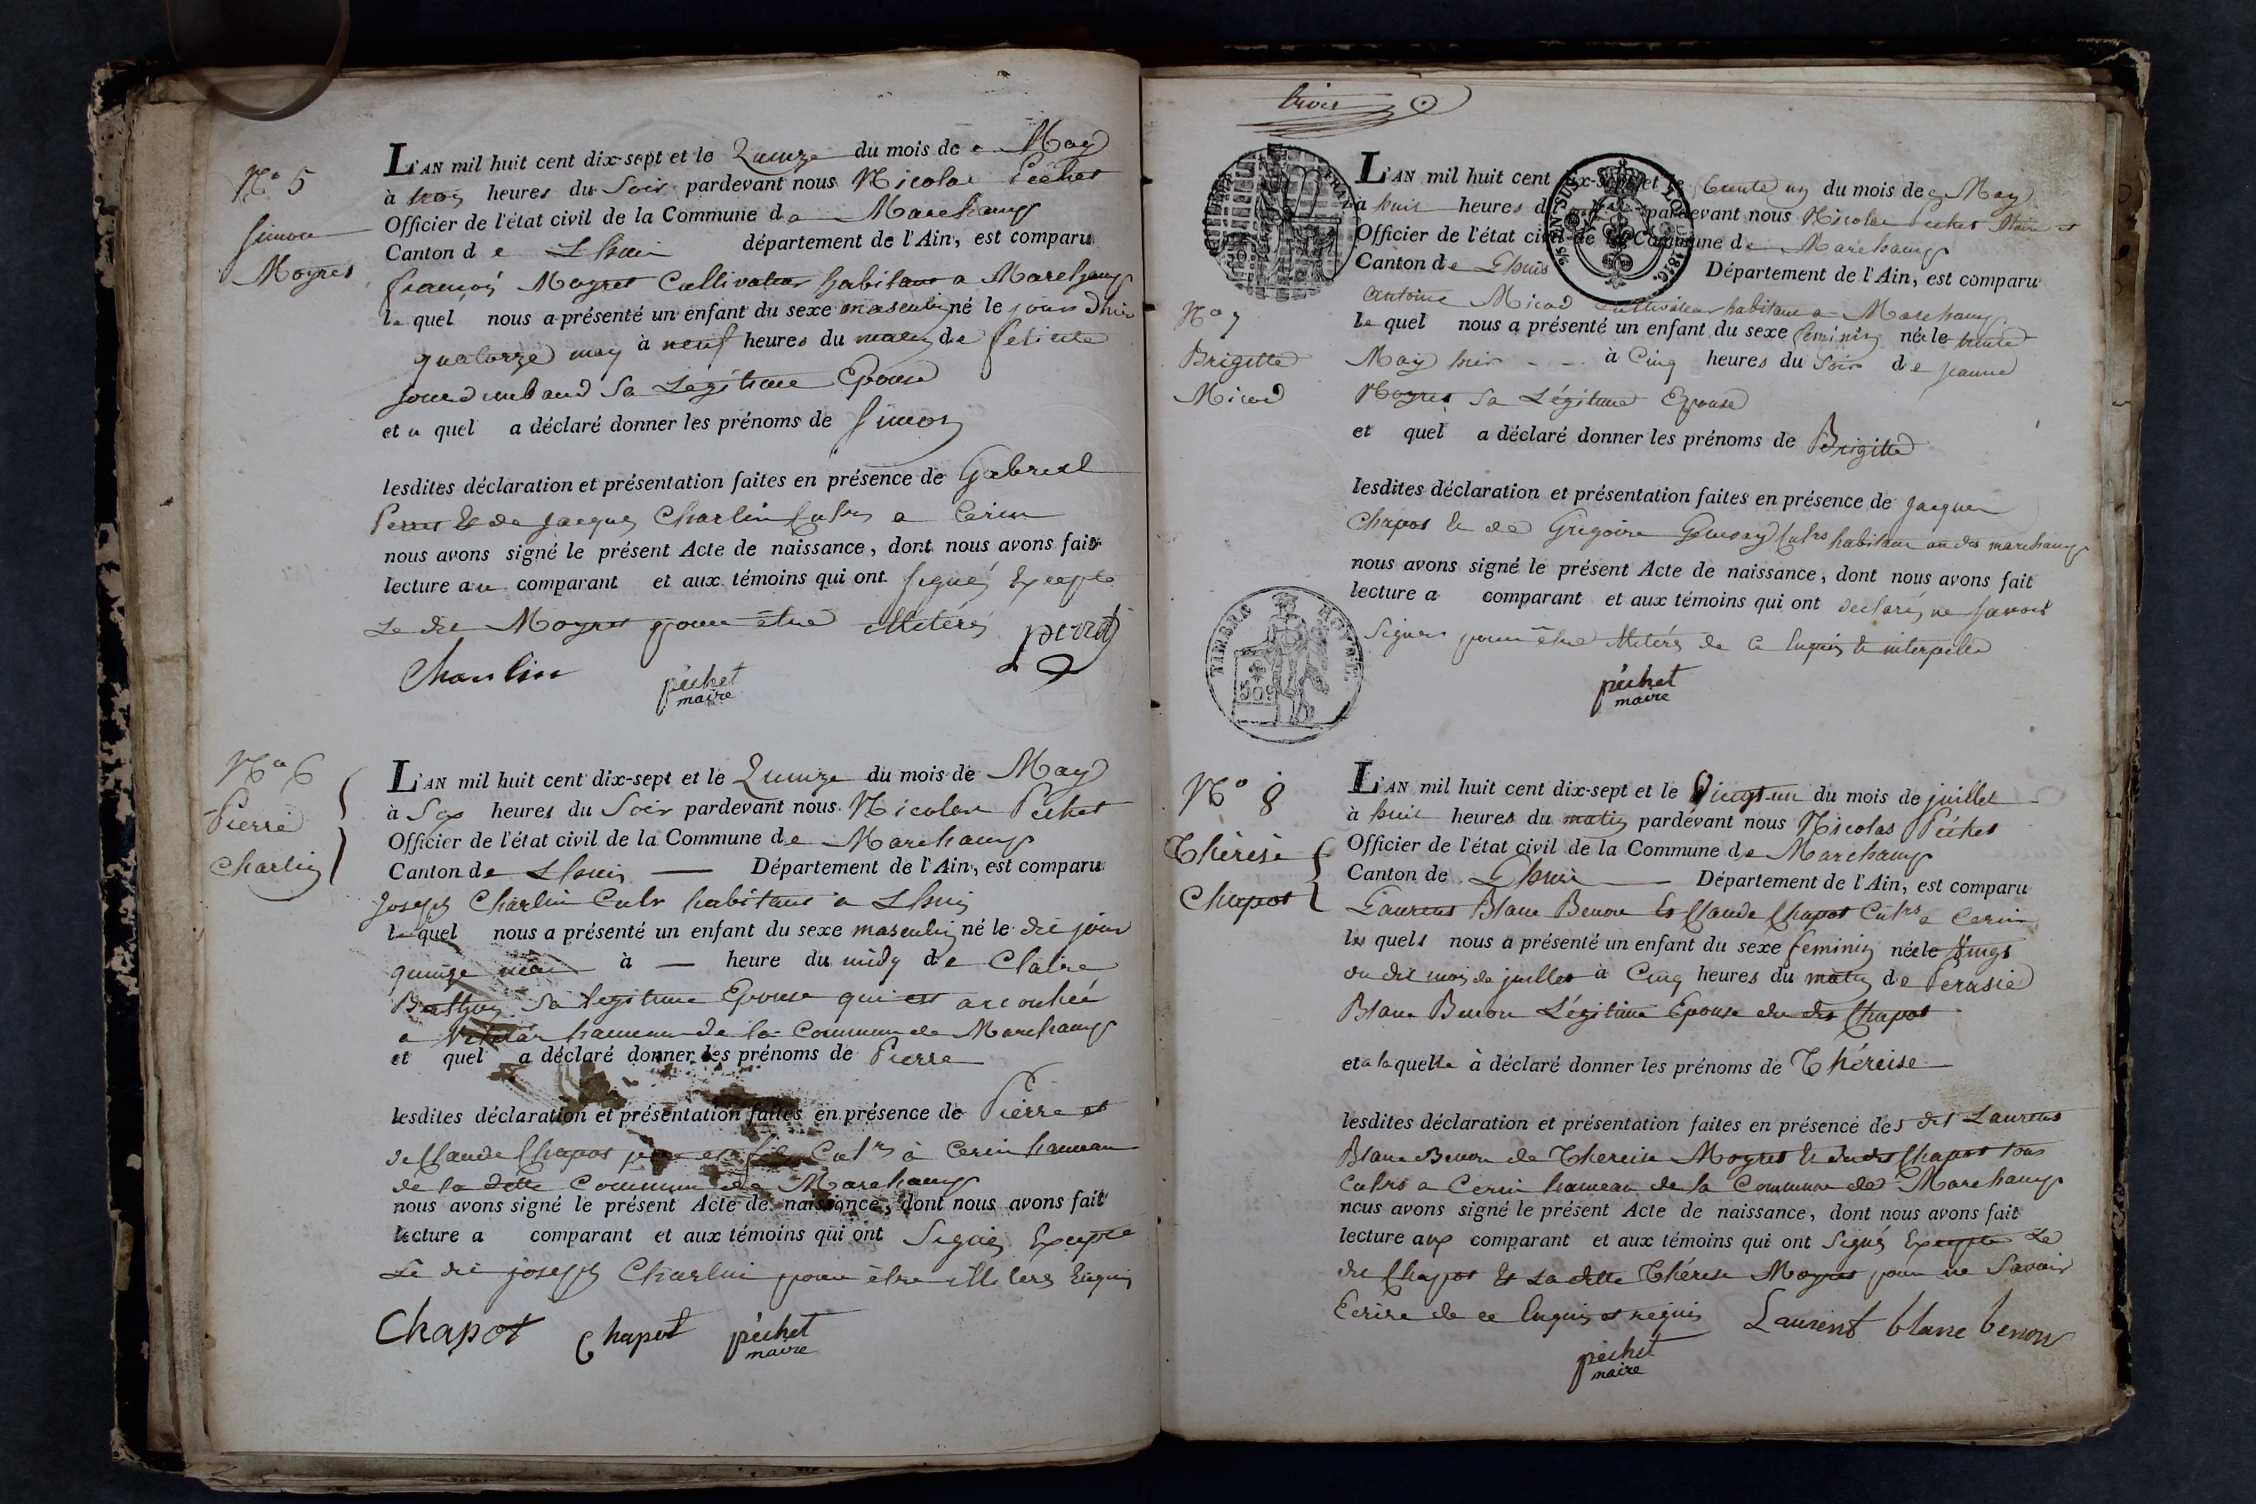 N° 5
Simon
Moyret
L'AN mil huit cent dix-sept et le Quinze du mois de May
à trois heures du Soir pardevant nous Nicolas Péchet
Officier de l'état civil de la Commune de Marchamp
Canton de Lhuis département de l'Ain, est comparu
françois Moyret Cultivateur habitant a Marchamp
lequel nous a présenté un enfant du sexe masculin né le jour d'hier
quatorze may à neuf heures du matin de felicité
sa Légitime Epouse
et a quel a déclaré donner les prénoms de Simon
lesdites déclaration et présentation faites en présence de Gabriel
Perret et de Jacques Charlin Cultrs a Cerin
nous avons signé le présent Acte de naissance, dont nous avons fait
lecture au comparant et aux témoins qui ont signés Excepté
Le dit Moyret pour être illitéré
Charlin péchet maire perret
N° 6
Pierre
Charlin
L'AN mil huit cent dix-sept et le Quinze du mois de May
à Six heures du Soir pardevant nous Nicolas Péchet
Officier de l'état civil de la Commune de Marchamp
Canton de Lhuis Département de l'Ain, est comparu
Joseph Charlin Cultr habitant à Lhuis
lequel nous a présenté un enfant du sexe masculin né le dit jour
quinze mai à — heure du midy de Claire
sa legitime Epouse qui est accouchée
a hameau de la Commune de Marchamp
et quel a déclaré donner les prénoms de Pierre
lesdites déclaration et présentation faites en présence de Pierre et
de Claude Chapot père et fils Cultrs à Cerin hameau
de la dette Commune de Marchamp
nous avons signé le présent Acte de naissance, dont nous avons fait
lecture a comparant et aux témoins qui ont Signés Excepté
Le dit joseph Charlin pour être illitéré Enquis
Chapot Chapot péchet
maire
trois
TIMBRE ROYAL
1816
L'AN mil huit cent dix-sept et le trente un du mois de May
à huit heures du pardevant nous Nicolas Péchet Maire et
Officier de l'état civil de la Commune de Marchamp
Canton de Lhuis Département de l'Ain, est comparu
N° 7
Brigitte
Micod
antoine Micod cultivateur habitant a Marchamp
lequel nous a présenté un enfant du sexe féminin née le trente
May hier - - à Cinq heures du Soir de jeanne
Moyret sa Légitime Epouse
et quel a déclaré donner les prénoms de Brigitte
lesdites déclaration et présentation faites en présence de Jacques
Chapot et de Grégoire Cultrs habitant au dit marchamp
nous avons signé le présent Acte de naissance, dont nous avons fait
lecture a comparant et aux témoins qui ont declarés ne savoir
signer pour être illitérés de ce Enquis et interpellé
péchet
maire
TIMBRE ROYAL
N° 8
Thérèse
Chapot
L'AN mil huit cent dix-sept et le Vingt-un du mois de juillet
à huit heures du matin pardevant nous Nicolas Péchet
Officier de l'état civil de la Commune de Marchamp
Canton de Lhuis Département de l'Ain, est comparu
Laurent Blanc Benon et Claude Chapot Cultrs a Cerin
les quels nous a présenté un enfant du sexe feminin née le vingt
du dit mois de juillet à Cinq heures du matin de
Blanc Benon Légitime Epouse du dit Chapot
et a laquelle à déclaré donner les prénoms de Théreise
lesdites déclaration et présentation faites en présence des dit Laurent
Blanc Benon de Thereise Moyret et dudit Chapot tous
Cultrs a Cerin hameau de la Commune de Marchamp
nous avons signé le présent Acte de naissance, dont nous avons fait
lecture aux comparant et aux témoins qui ont Signés Excepté Le
dit Chapot et La dette Thérèse Moyret pour ne Savoir
Ecrire de ce Enquis et requis Laurent blanc benon
péchet
maire